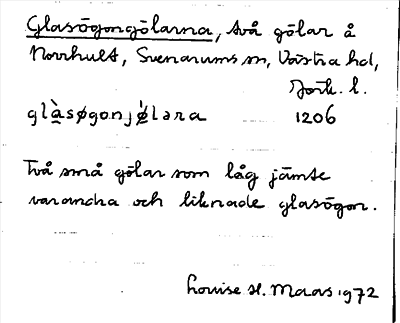 Glasögongölarna, två gölar å
Norrhult, Svenarums sn, Västra hd,
Jönk. l.
glàsøgonjø̍lara 1206
Två små gölar som låg jämte
varandra och liknade glasögon.
Louise H. Maas 1972